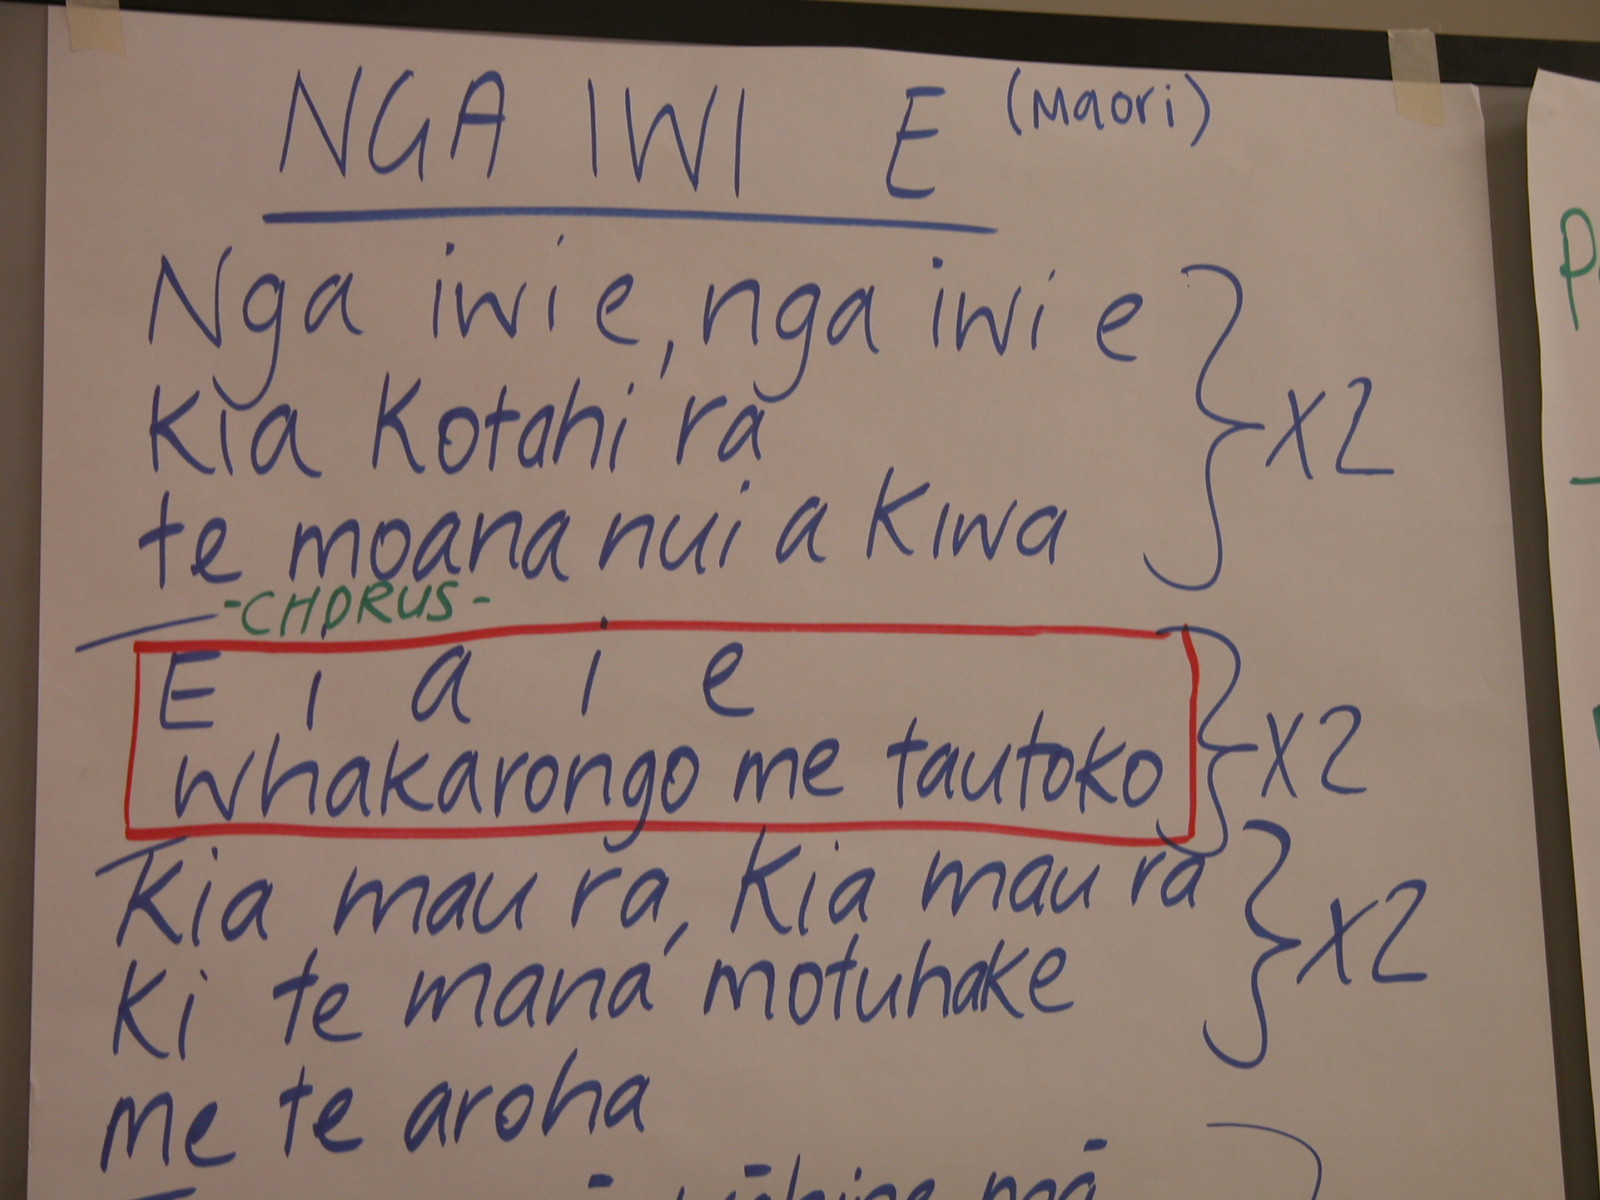 NGA IWI E (Maori)
Nga iwi e, nga iwi e
Kia Kotahi ra
te moana nui a Kiwa
X2
-CHORUS-
E i a i e
whakarongo me tautoko
X2
Kia mau ra, Kia mau ra
Ki te mana motuhake
X2
me te aroha